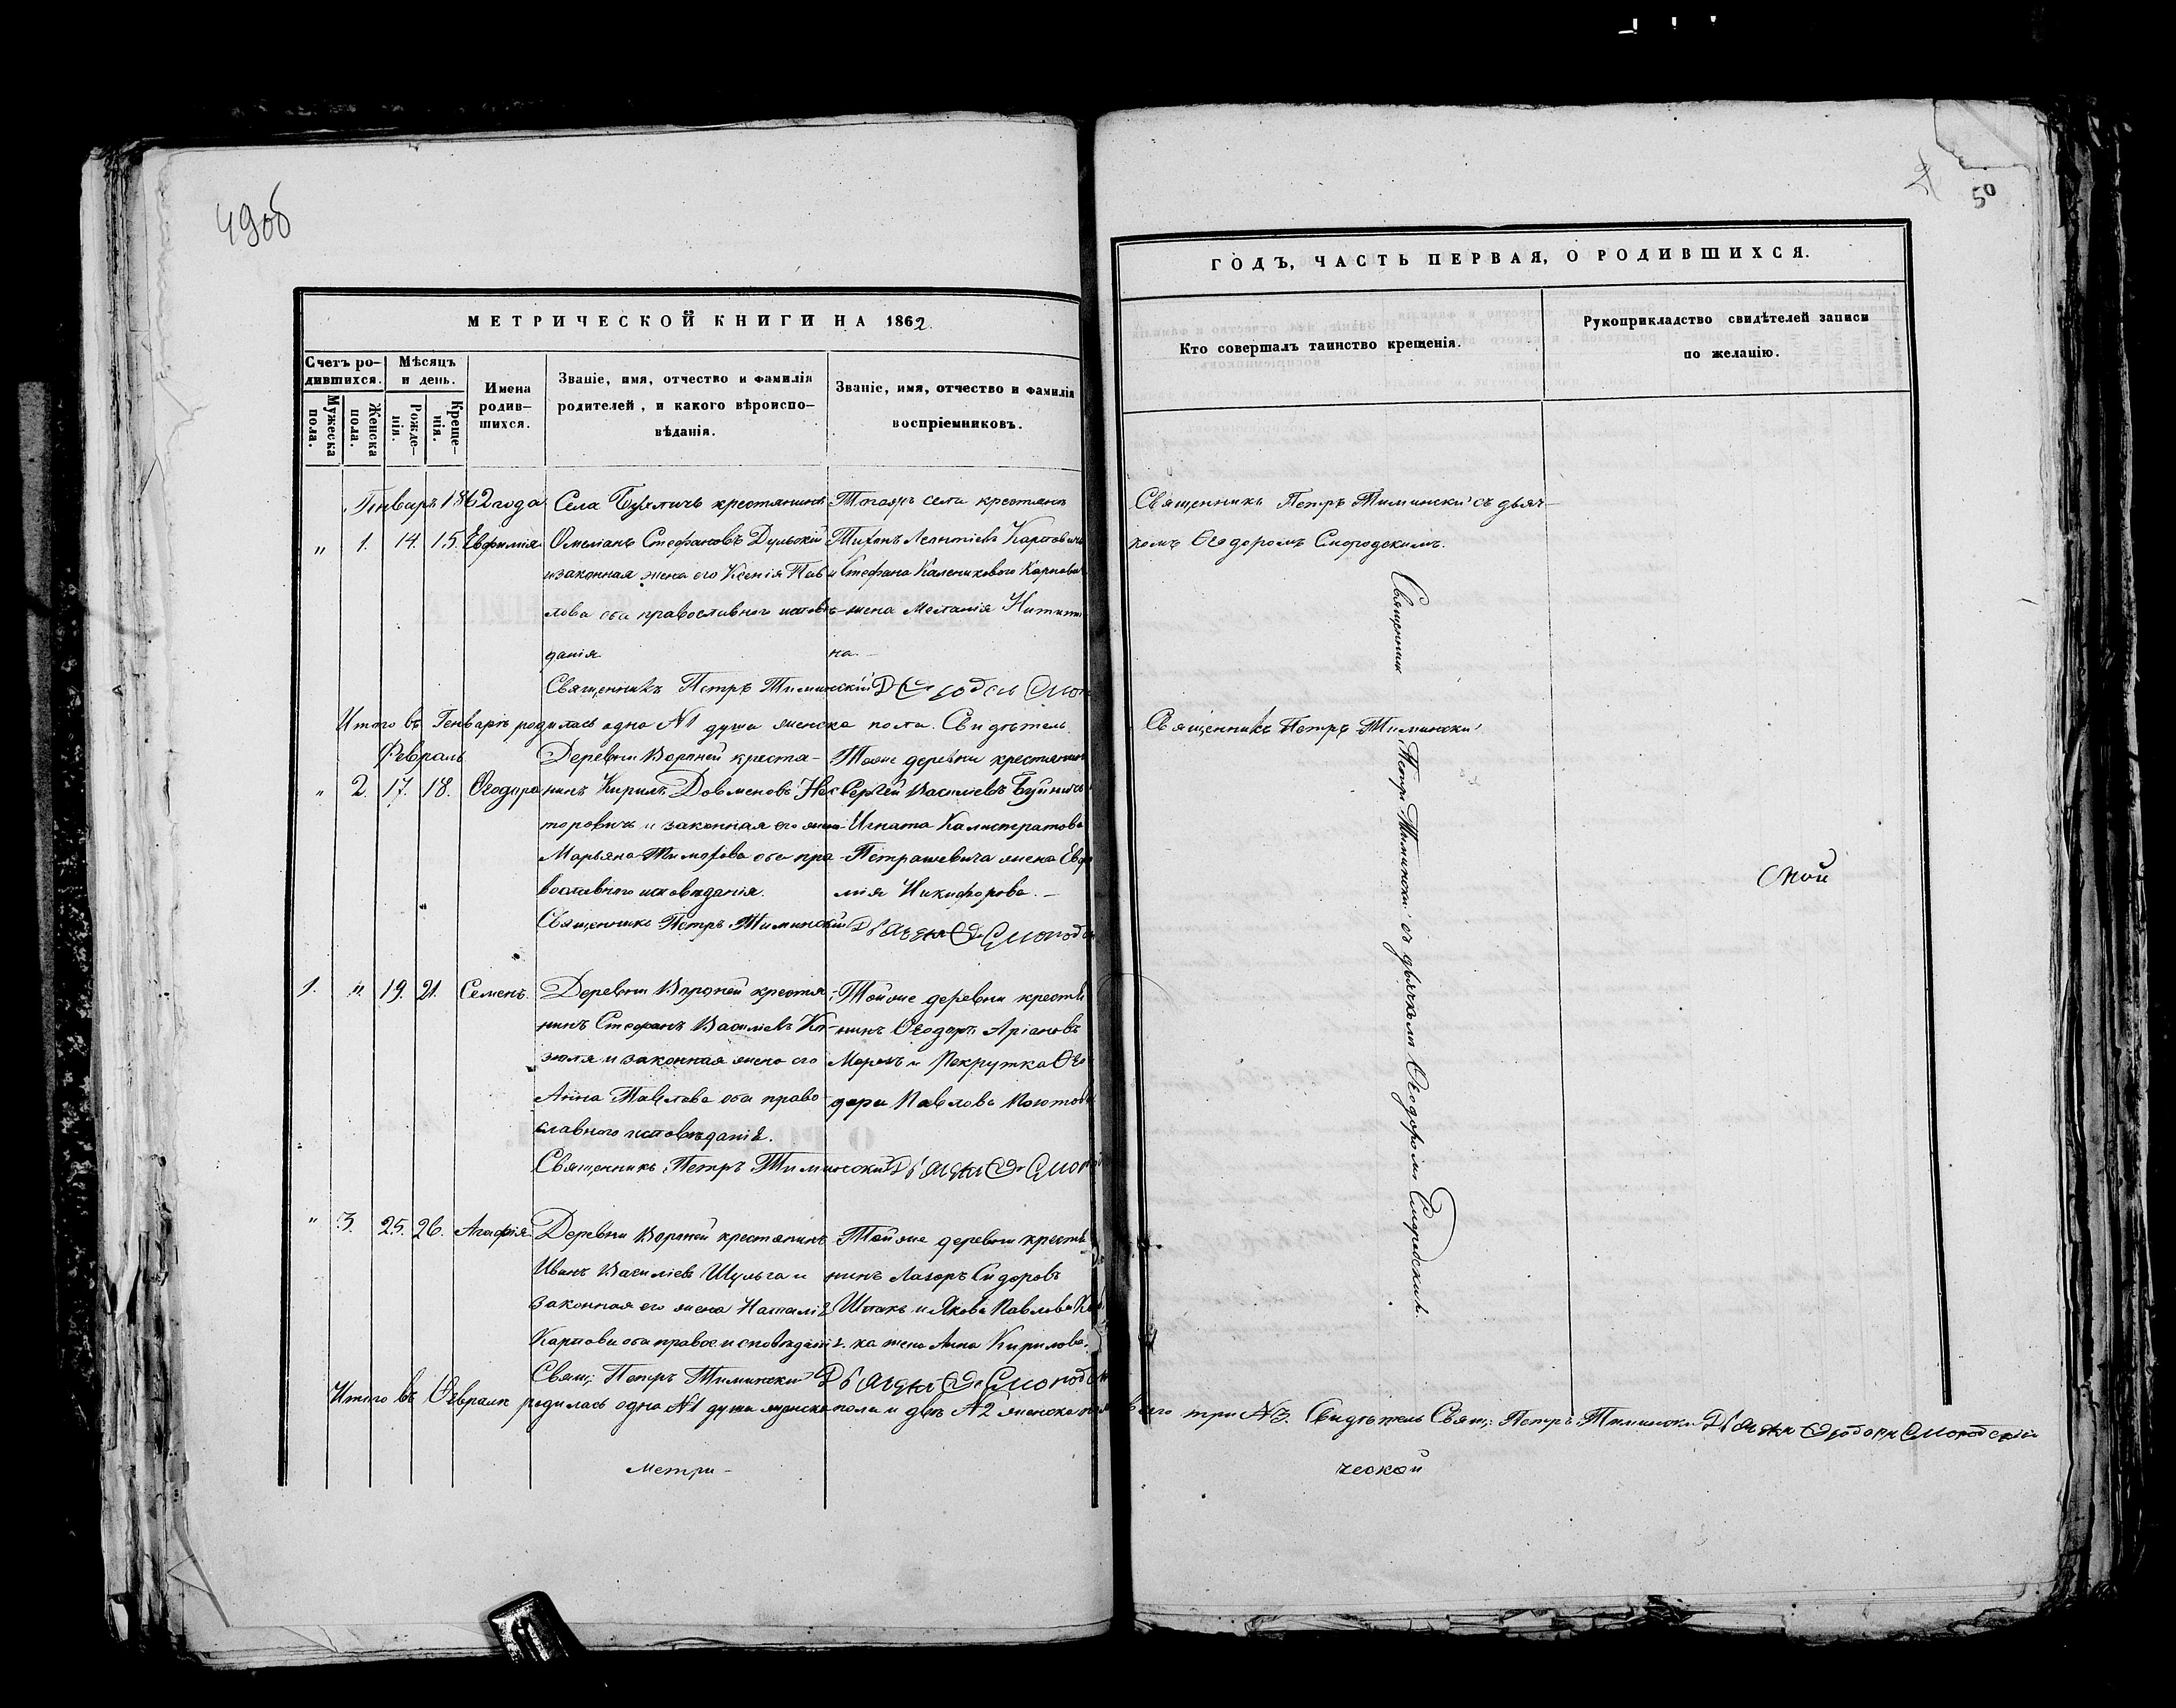 49об
50
МЕТРИЧЕСКОЙ КНИГИ НА 1862
ГОДЪ, ЧАСТЬ ПЕРВАЯ, О РОДИВШИХСЯ.
Счетъ ро-
дившихся.
Мужеска пола.
Женска пола.
Мѣсяцъ
и день.
Рожде-
нія.
Креще-
нія.
Имена
родив-
шихся.
Званіе, имя, отчество и фамилія
родителей, и какого вѣроиспо-
вѣданія.
Званіе, имя, отчество и фамилія
воспріемниковъ.
Кто совершалъ таинство крещенія.
Рукоприкладство свидѣтелей записи
по желанію.
Генварь 1862 года
" 1. 14. 15. Евфимія
Села крестянинъ
Омеліанъ Стефановъ Дульскій
и законная жена его Ксенія Пав
лова оба православного исповѣ-
данія
Священникъ Петръ Тиминскій
села крестянъ
Тихонъ Леонтіевъ
и Стефана Каленикового
жена Меланія
на.
Священникъ Петръ Тиминскій съ дьяч-
комъ Ѳеодоромъ Смородскимъ.
Итого въ Генварѣ родилась одна №1 душа женска пола. Свидѣтель
Священникъ Петръ Тиминскій
Февраль
" 2. 17. 18. Ѳеодора
Деревни Вороней крестя-
нинъ Кирилъ Довменовъ Нес
торовичъ и законная его жена
Марьяна Тимофева оба пра-
вославного исповѣданія.
Священникъ Петръ Тиминскій
Тоже деревни крестянинъ
Сергей Василіевъ
Игната Калистратова
Петрашевича жена Евфи
мія Никифорова.
Священникъ Петръ Тиминскій съ дьячкомъ Ѳеодоромъ
1. " 19. 21. Семенъ.
Деревни Вороней крестя-
нинъ Стефанъ Василіевъ Ко-
зюля и законная жена его
Анна Павлова оба право-
славного исповѣданія.
Священникъ Петръ Тиминскій
Тойже деревни крестья
нинъ Ѳеодоръ Аріановъ
Морозъ и Рекрутка Ѳео
дора Павлова
" 3. 25. 26. Агафія.
Деревни Вороней крестянинъ
Иванъ Василіевъ Шульга и
законная его жена Наталія
Карпова оба правос. исповѣданія.
Свящ: Петръ Тиминскій
Тойже деревни крестья
нинъ Лазоръ Сидоровъ
Шпакъ и Якова Павлова
ка жена Анна Кирилова.
Итого въ Февралѣ родилась одна №1 душа мужска пола и двѣ №2 женска пола всего три №3. Свидѣтель Свящ: Петръ Тиминскій Дьячекъ Ѳеодоръ Смородскій
Метри-
ческой